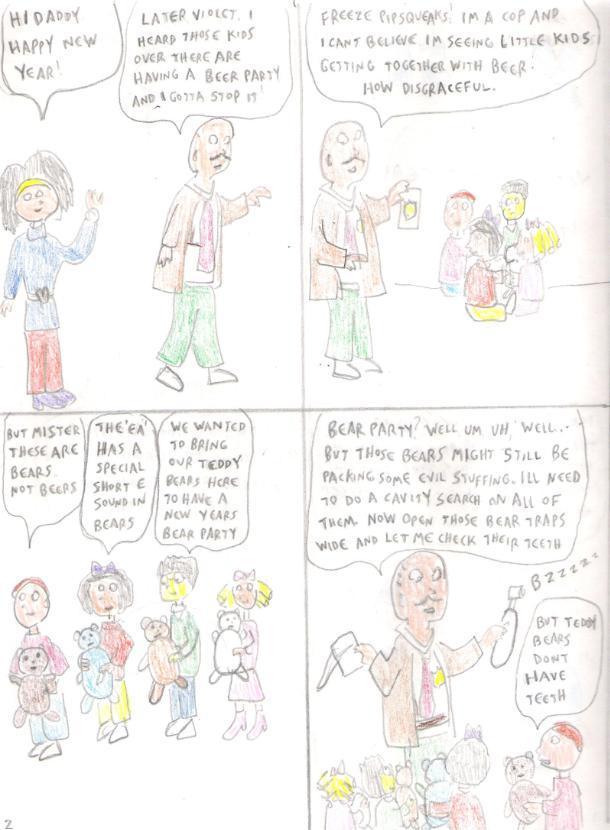 HI DADDY
HAPPY NEW
YEAR!
LATER VIOLET. I
HEARD THOSE KIDS
OVER THERE ARE
HAVING A BEER PARTY
AND I GOTTA STOP IT!
FREEZE PIPSQUEAKS! IM A COP AND
I CANT BELIEVE IM SEEING LITTLE KIDS
GETTING TOGETHER WITH BEER!
HOW DISGRACEFUL.
BUT MISTER
THESE ARE
BEARS
NOT BEERS
THE 'EA'
HAS A
SPECIAL
SHORT E
SOUND IN
BEARS
WE WANTED
TO BRING
OUR TEDDY
BEARS HERE
TO HAVE A
NEW YEARS
BEAR PARTY
BEAR PARTY? WELL UM UH, WELL...
BUT THOSE BEARS MIGHT STILL BE
PACKING SOME EVIL STUFFING. ILL NEED
TO DO A CAVITY SEARCH ON ALL OF
THEM. NOW OPEN THOSE BEAR TRAPS
WIDE AND LET ME CHECK THEIR TEETH
BZZZZZZ
BUT TEDDY
BEARS
DONT
HAVE
TEETH
2